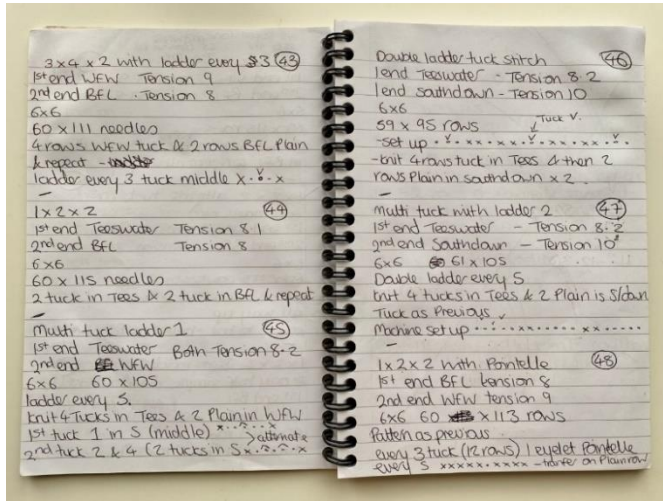 3x4x2 with ladder every 3 (43)
1st end WFW Tension 9
2nd end BFL - Tension 8
6x6
60 x 111 needles
4 rows WFW tuck & 2 rows BFL Plain
& repeat -
ladder every 3 tuck middle x . o . x
1x2x2 (44)
1st end Teeswater Tension 8.1
2nd end BFL Tension 8
6x6
60 x 115 needles
2 tuck in Tees & 2 tuck in BFL & repeat
multi tuck ladder 1 (45)
1st end Teeswater Both Tension 8.2
2nd end WFW
6x6 60 x 105
ladder every 5.
knit 4 Tucks in Tees & 2 Plain in WFW
1st tuck 1 in 5 (middle) x..^..x > alternate
2nd tuck 2 & 4 (2 tucks in 5 x.^.^.x
Double ladder tuck stitch (46)
1 end Teeswater - Tension 8.2
1 end southdown - Tension 10
6x6
59 x 95 rows Tuck V.
-set up . v . xx . . v . xx . v . x
-knit 4 rows tuck in Tees & then 2
rows Plain in southdown x 2.
multi tuck with ladder 2 (47)
1st end Teeswater - Tension 8.2
2nd end Southdown - Tension 10
6x6 61 x 105
Double ladder every 5
knit 4 tucks in Tees & 2 Plain is S/down
Tuck as Previous
Machine set up ..... xx ..... xx ....
1x2x2 with Pointelle (48)
1st end BFL tension 8
2nd end WFW tension 9
6x6 60 x 113 rows
Patten as previous
every 3 tuck (12 rows) 1 eyelet Pointelle
every 5 xxxxx.xxxx - tranfer on Plain row